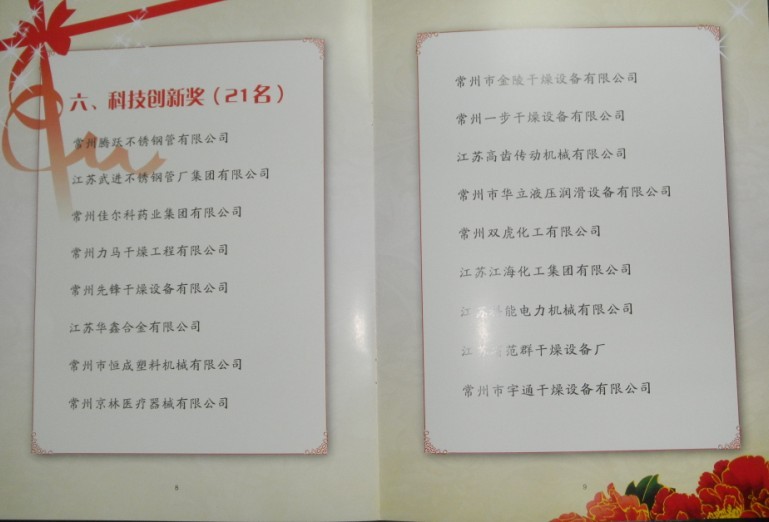 六、科技创新奖（21名）
常州腾跃不锈钢管有限公司
江苏武进不锈钢管厂集团有限公司
常州佳尔科药业集团有限公司
常州力马干燥工程有限公司
常州先锋干燥设备有限公司
江苏华鑫合金有限公司
常州市恒成塑料机械有限公司
常州京林医疗器械有限公司
8
常州市金陵干燥设备有限公司
常州一步干燥设备有限公司
江苏高齿传动机械有限公司
常州市华立液压润滑设备有限公司
常州双虎化工有限公司
江苏江海化工集团有限公司
江苏 能电力机械有限公司
江 范群干燥设备厂
常州市宇通干燥设备有限公司
9